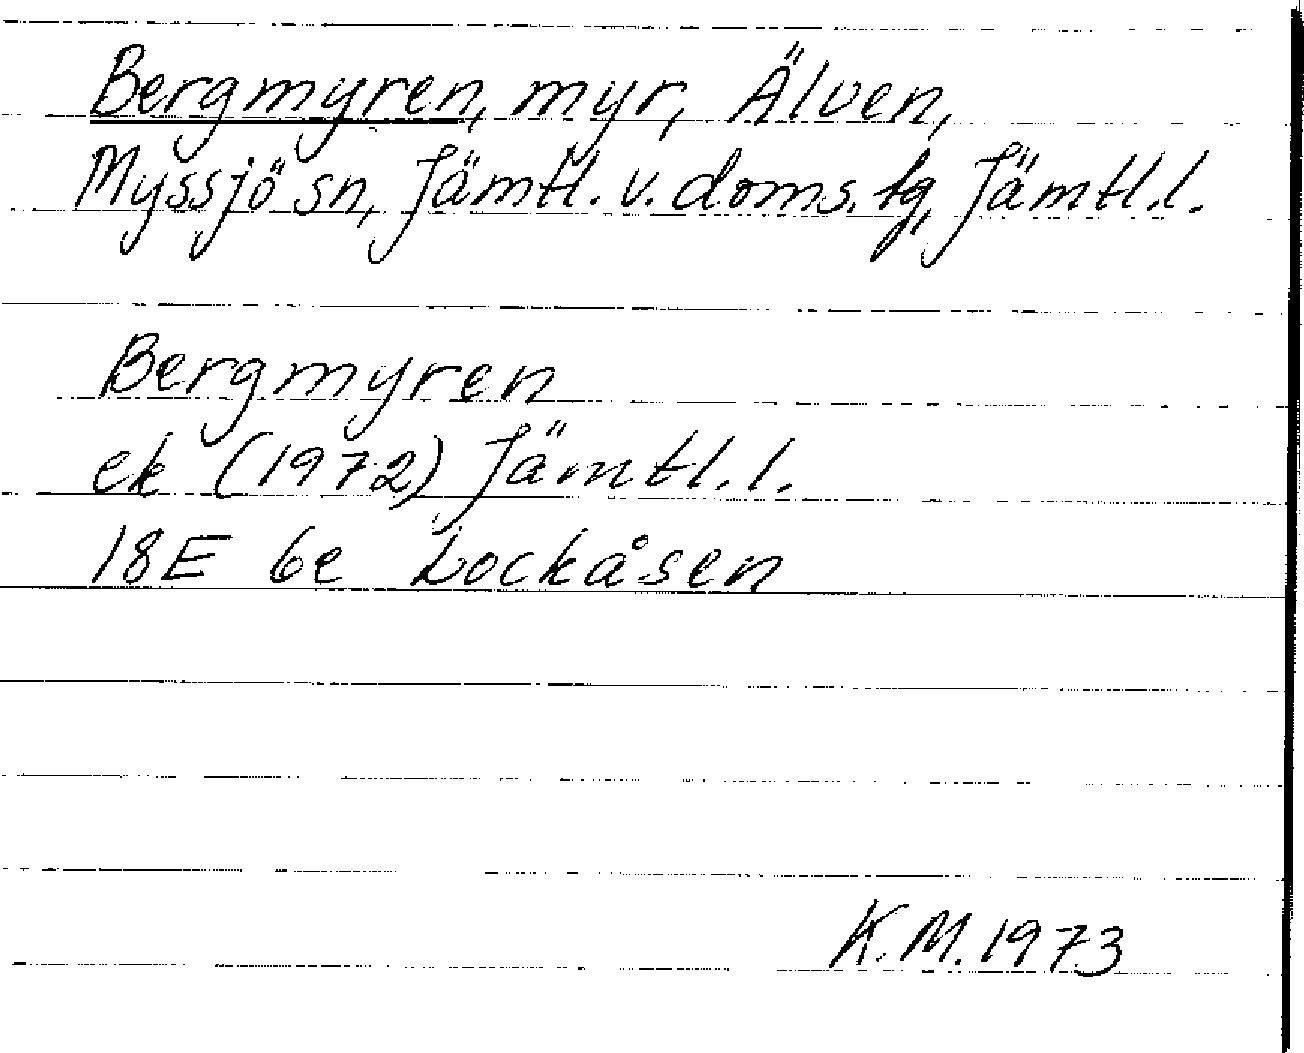 Bergmyren, myr, Älven,
Myssjö sn, Jämtl. v. doms. tg, Jämtl.l.
Bergmyren
ek (1972) Jämtl.l.
18E 6e Lockåsen
K.M. 1973